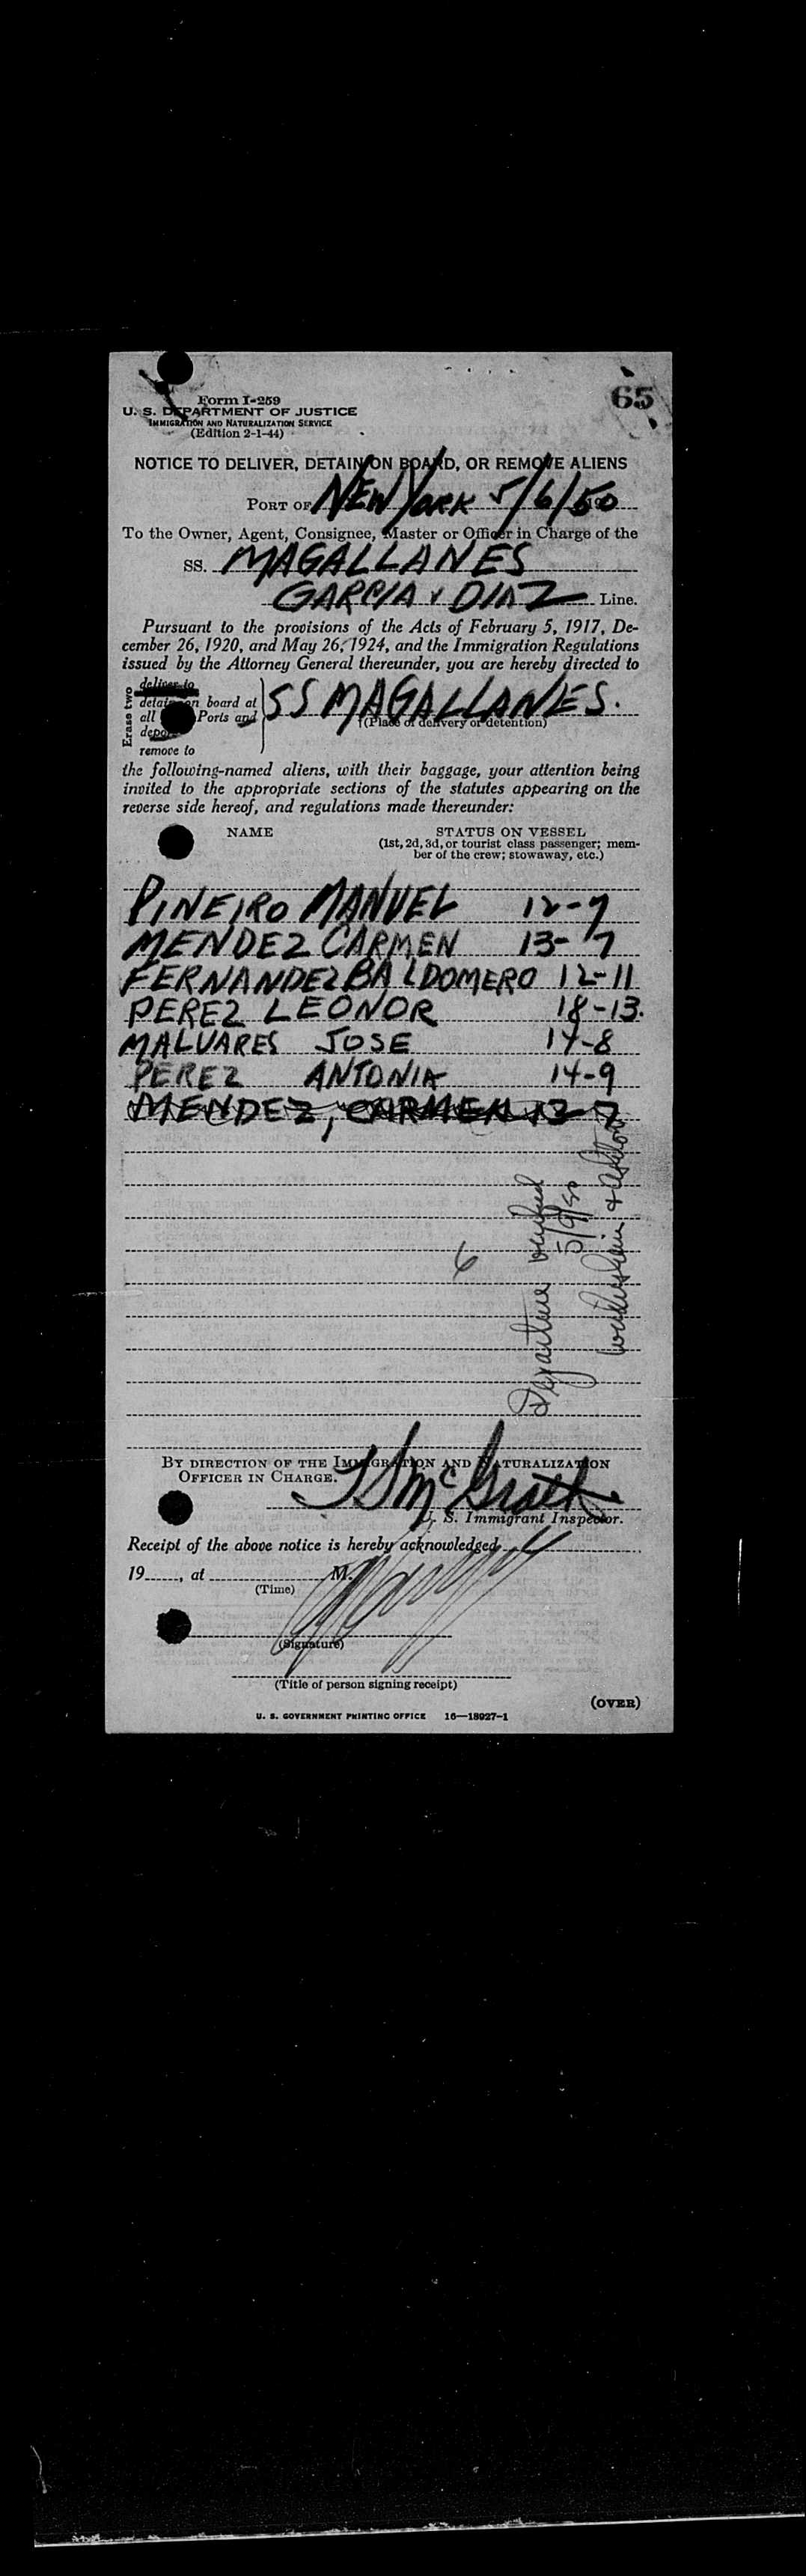 65
Form I-259
U. S. DEPARTMENT OF JUSTICE
IMMIGRATION AND NATURALIZATION SERVICE
(Edition 2-1-44)
NOTICE TO DELIVER, DETAIN ON BOARD, OR REMOVE ALIENS
PORT OF NEW YORK 5/6/50
To the Owner, Agent, Consignee, Master or Officer in Charge of the
SS. MAGALLANES
GARCIA Y DIAZ Line.
Pursuant to the provisions of the Acts of February 5, 1917, De-
cember 26, 1920, and May 26, 1924, and the Immigration Regulations
issued by the Attorney General thereunder, you are hereby directed to
Erase two
deliver to
detain on board at
all Ports and
remove to
SS MAGALLANES.
(Place of delivery or detention)
the following-named aliens, with their baggage, your attention being
invited to the appropriate sections of the statutes appearing on the
reverse side hereof, and regulations made thereunder:
NAME STATUS ON VESSEL
(1st, 2d, 3d, or tourist class passenger; mem-
ber of the crew; stowaway, etc.)
PINEIRO MANUEL 12-7
MENDEZ CARMEN 13-7
FERNANDEZ BALDOMERO 12-11
PEREZ LEONOR 18-13.
MALVARES JOSE 14-8
PEREZ ANTONIA 14-9
MENDEZ, CARMEN 13-7
6
Departure verified
5/9/50
BY DIRECTION OF THE IMMIGRATION AND NATURALIZATION
OFFICER IN CHARGE.
McGrath
U. S. Immigrant Inspector.
Receipt of the above notice is hereby acknowledged
19 , at M.
(Time)
(Signature)
(Title of person signing receipt)
(OVER)
U. S. GOVERNMENT PRINTING OFFICE 16—18927-1